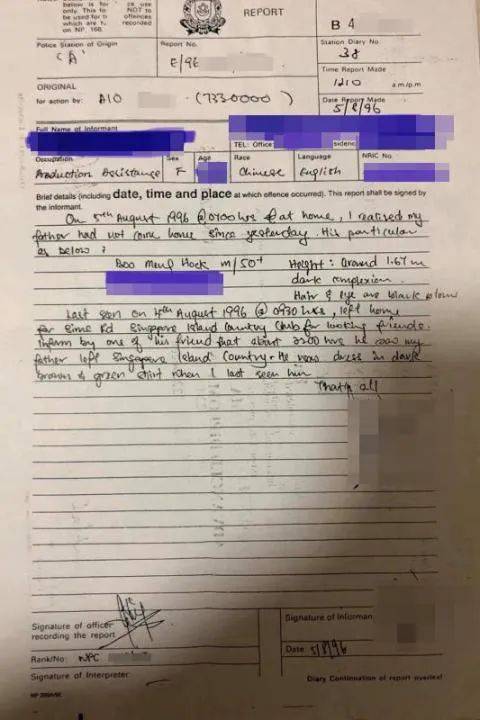 below is for
use
only. This fo
NOT to
be used for
offences
which are
recorded
on NP. 16B.
REPORT
B 4
Police Station of Origin
Report No.
Station Diary No.
'A'
E/96
38
Time Report Made
1210 a.m/p.m.
ORIGINAL
for action by: AIO (7330000)
Date Report Made
5/8/96
Full Name of Informant
TEL: Office:
sidenc
Occupation
Sex
Age
Race
Language
NRIC No.
Production Assistance
F
Chinese
English
Brief details (including date, time and place at which offence occurred). This report shall be signed by
the informant.
On 5th August 1996 @ 0700 hrs @ at home, I realised my
father had not come home since yesterday. His particular
as below:
Boo Meng Hock m/50+ Height: around 1.67 m
dark complexion.
Hair & eye are black colour
Last seen on 4th August 1996 @ 0930 hrs, left home
for Sime Rd Singapore Island Country Club for looking friends.
Inform by one of his friend that about 2200 hrs he saw my
father left Singapore Island Country. He was dress in dark
brown & green shirt when I last seen him.
That's all
Signature of officer
recording the report
Signature of Informan
Rank/No: NPC
Date: 5/8/96
Signature of Interpreter:
Diary Continuation of report overleaf